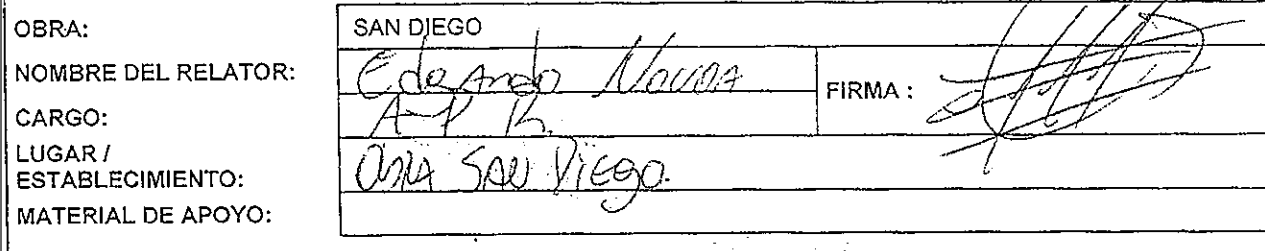 OBRA: SAN DIEGO
NOMBRE DEL RELATOR: FIRMA :
CARGO: A-P R.
LUGAR /
ESTABLECIMIENTO: OBRA SAN DIEGO.
MATERIAL DE APOYO: